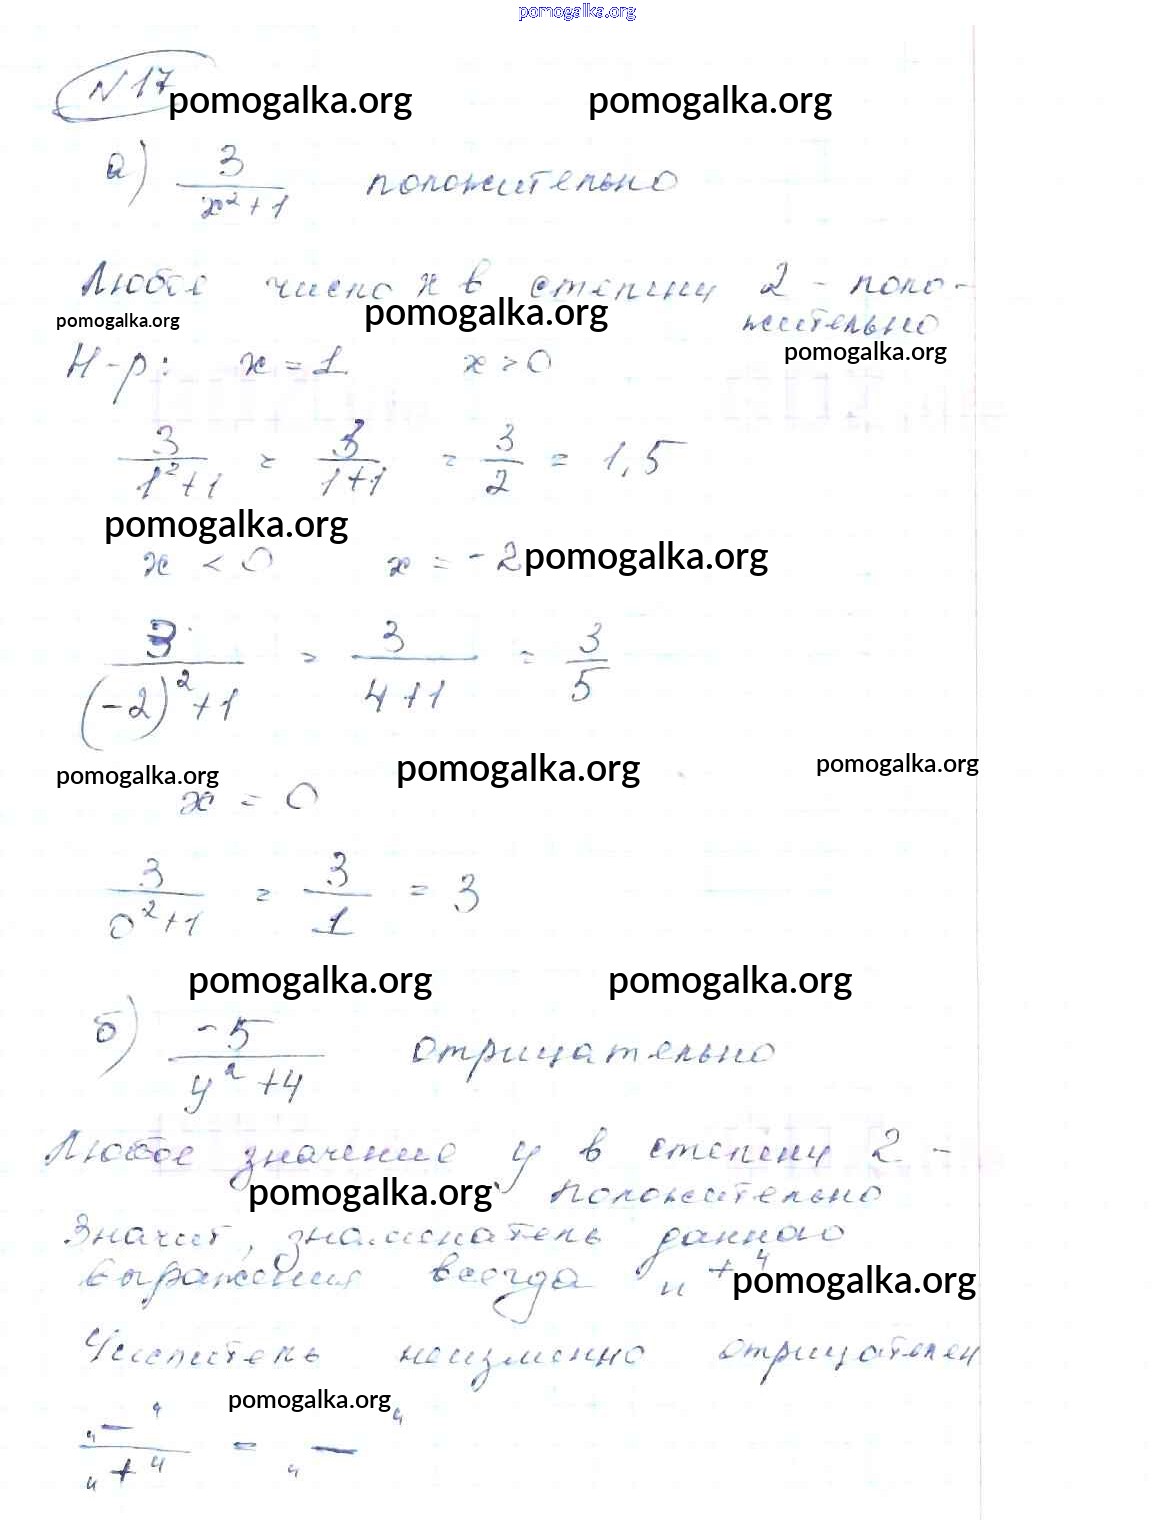 pomogalka.org
N 17
pomogalka.org pomogalka.org
а) 3/(x²+1) положительно
Любое число x в степени 2 - поло-
жительно
pomogalka.org pomogalka.org
pomogalka.org
Н-р: x = 1 x > 0
3/(1²+1) = 3/(1+1) = 3/2 = 1,5
pomogalka.org
x < 0 x = -2
pomogalka.org
3/((-2)²+1) = 3/(4+1) = 3/5
pomogalka.org pomogalka.org pomogalka.org
x = 0
3/(0²+1) = 3/1 = 3
pomogalka.org pomogalka.org
б) -5/(y²+4) отрицательно
Любое значение y в степени 2 -
pomogalka.org
положительно
Значит, знаменатель данного
выражения всегда "+"
pomogalka.org
Числитель неизменно отрицателен
pomogalka.org
"-"/"+" = "-"